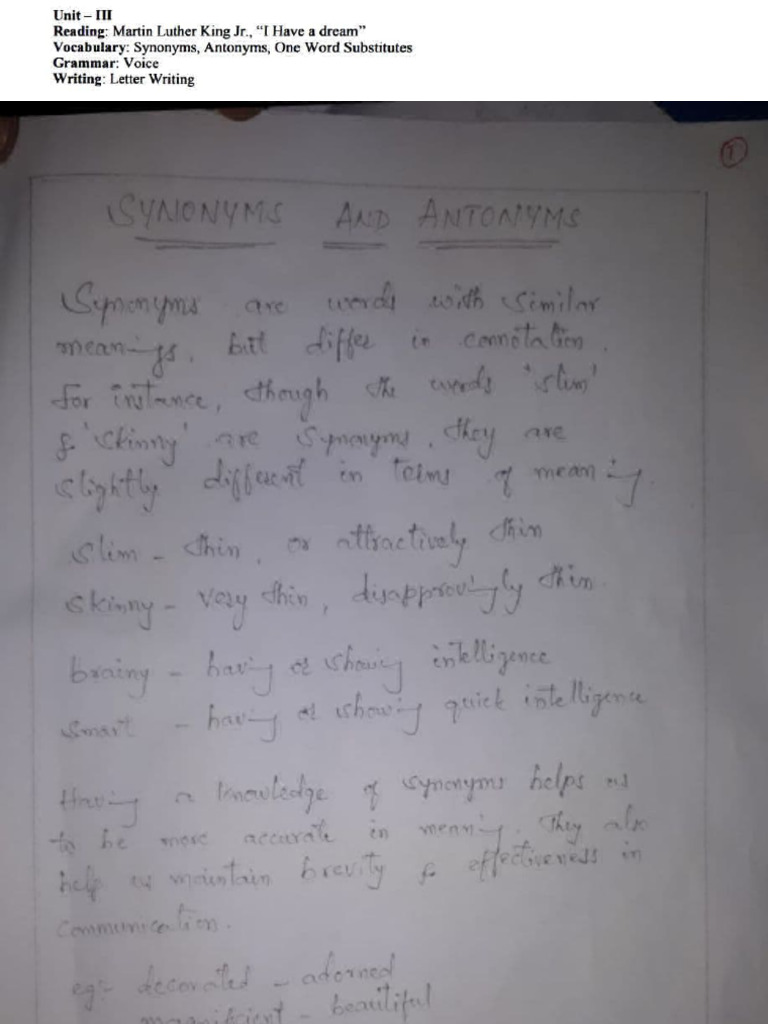 Unit – III
Reading: Martin Luther King Jr., “I Have a dream”
Vocabulary: Synonyms, Antonyms, One Word Substitutes
Grammar: Voice
Writing: Letter Writing
1
SYNONYMS AND ANTONYMS
Synonyms are words with similar
meanings, but differ in connotation.
for instance, though the words 'slim'
& 'skinny' are synonyms, they are
slightly different in terms of meaning.
slim - thin, or attractively thin
skinny - very thin, disapprovingly thin.
brainy - having or showing intelligence
smart - having or showing quick intelligence
Having a knowledge of synonyms helps us
to be more accurate in meaning. They also
help us maintain brevity & effectiveness in
communication.
eg:- decorated - adorned
magnificient - beautiful